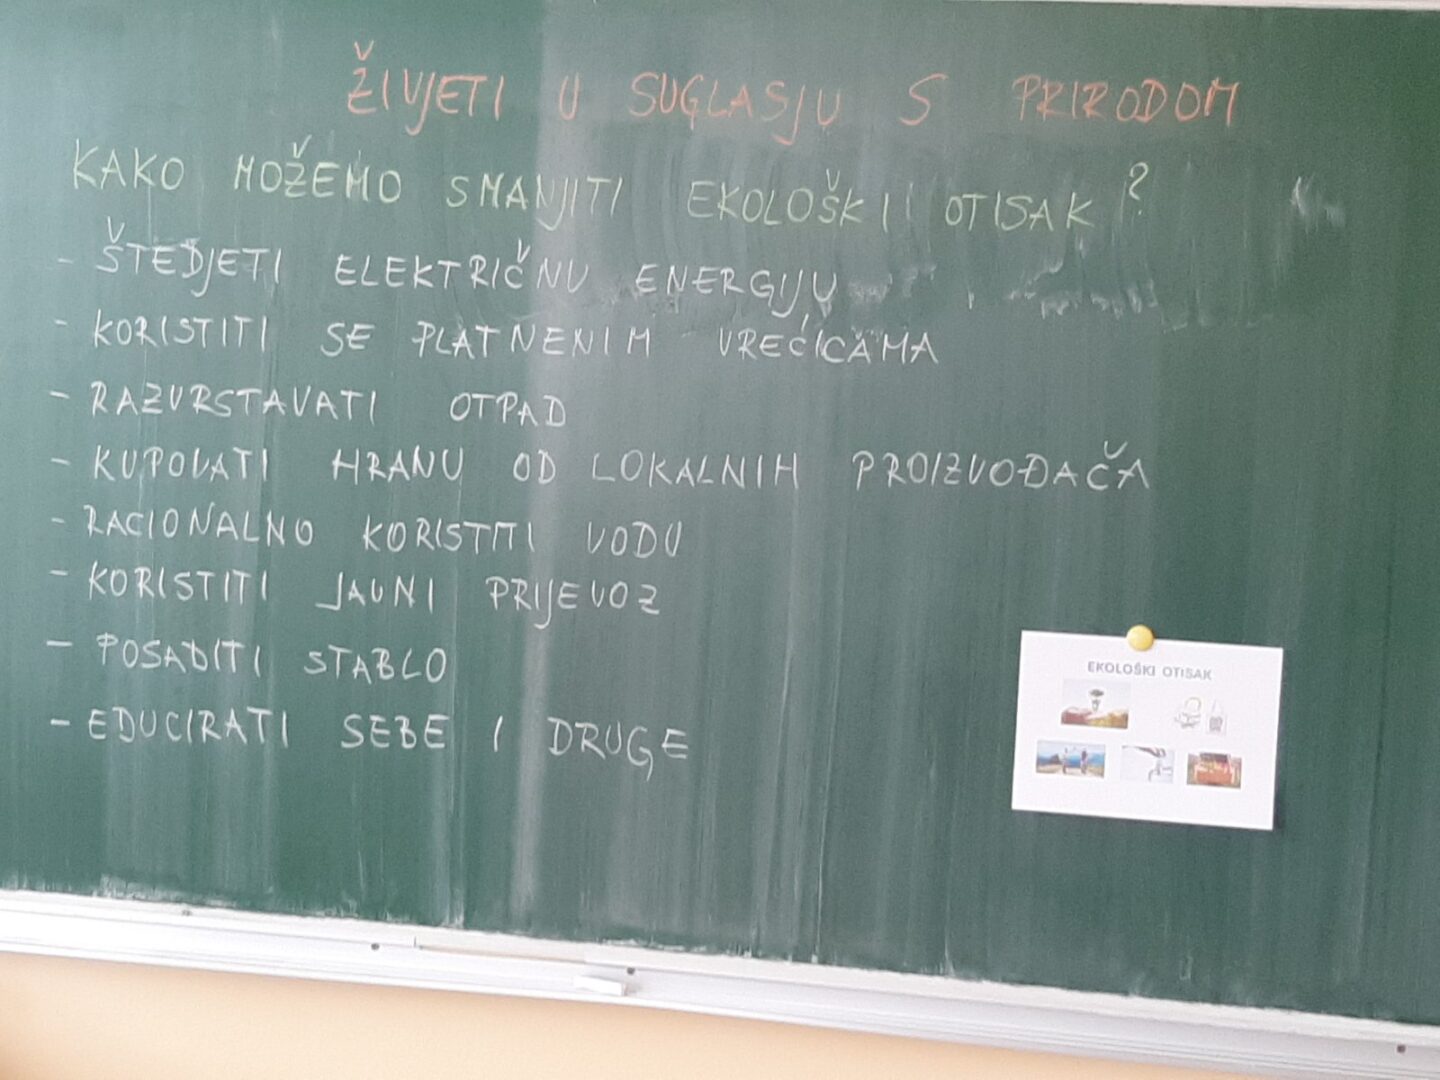 ŽIVJETI U SUGLASJU S PRIRODOM
KAKO MOŽEMO SMANJITI EKOLOŠKI OTISAK?
- ŠTEDJETI ELEKTRIČNU ENERGIJU
- KORISTITI SE PLATNENIM VREĆICAMA
- RAZVRSTAVATI OTPAD
- KUPOVATI HRANU OD LOKALNIH PROIZVOĐAČA
- RACIONALNO KORISTITI VODU
- KORISTITI JAVNI PRIJEVOZ
- POSADITI STABLO
- EDUCIRATI SEBE I DRUGE
EKOLOŠKI OTISAK